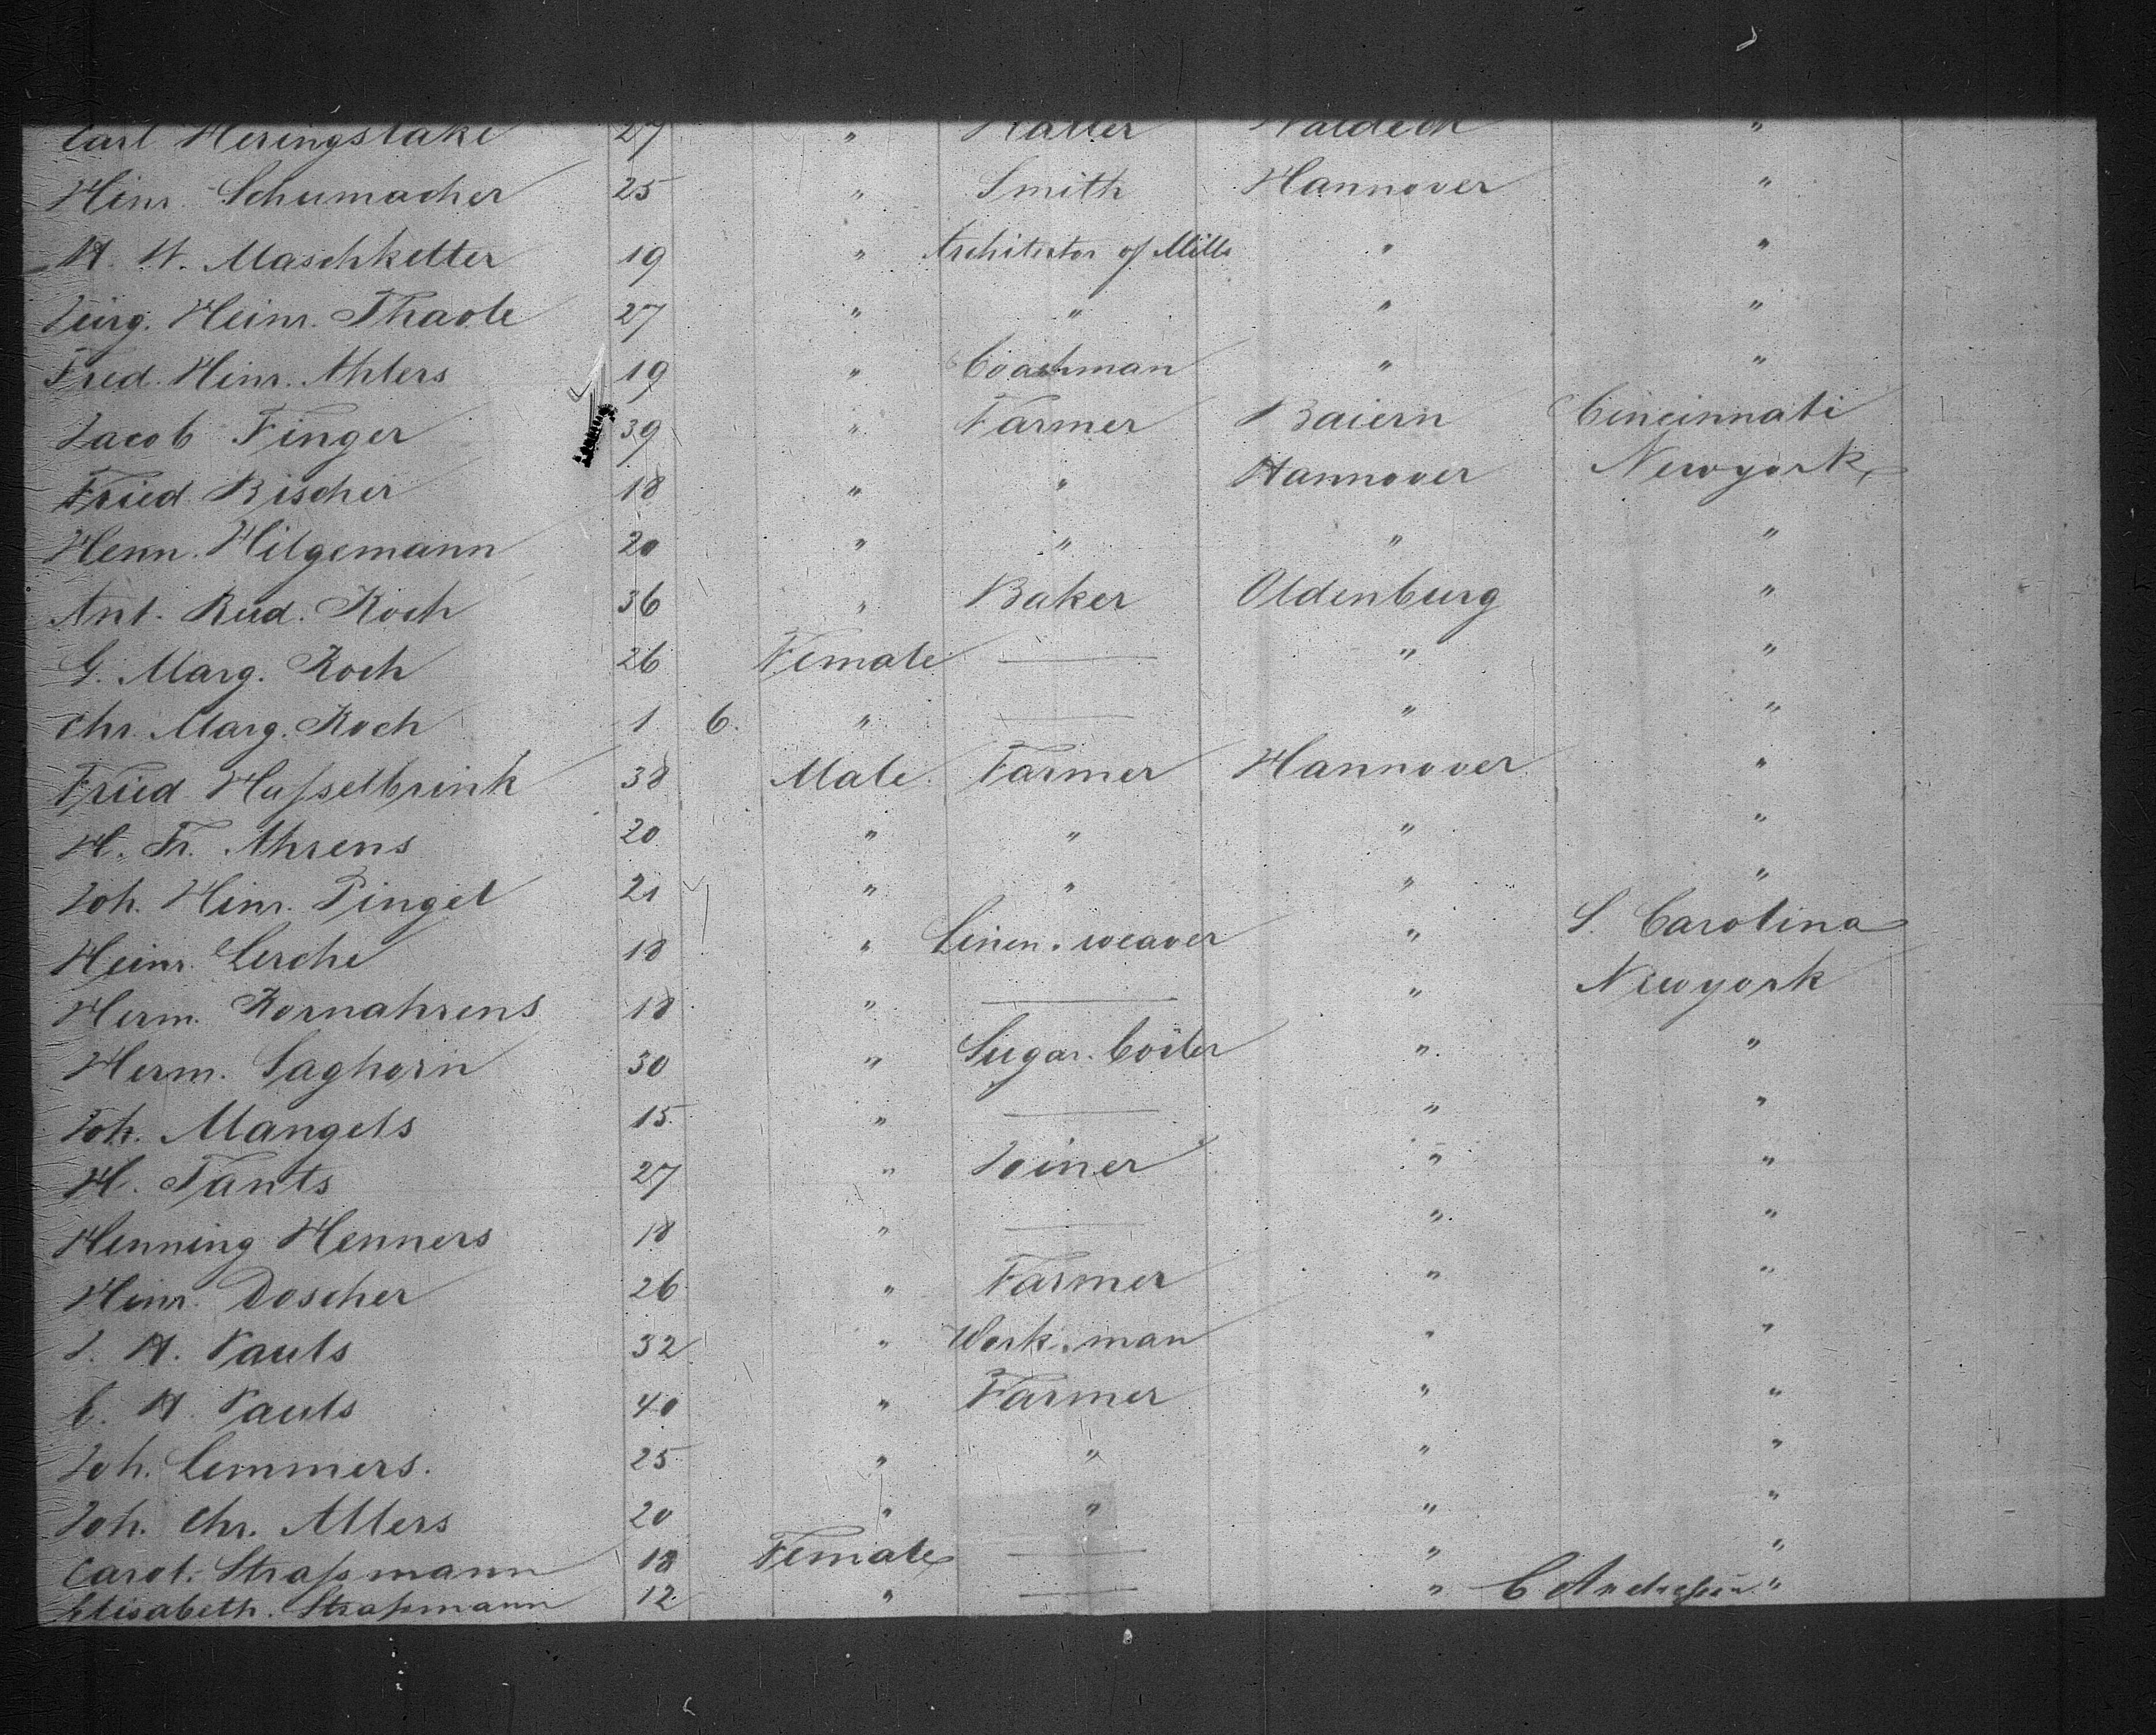 Carl Heringslake 27 " Hatter Waldeck "
Heinr. Schumacher 25 " Smith Hannover "
H. W. Maschketter 19 " Architector of Mills " "
Jürg. Heinr. Thaole 27 " " " "
Fried. Heinr. Ahlers 19 " Coachman " "
Jacob Finger 39 " Farmer Baiern Cincinnati
Fried Bischer 18 " " Hannover Newyork
Henn. Hilgemann 20 " " " "
Ant. Rud. Koch 36 " Baker Oldenburg "
G. Marg. Koch 26 Female — " "
Chr. Marg. Koch 1 6. " — " "
Fried Husselbrink 38 Male Farmer Hannover "
H. Fr. Ahrens 20 " " " "
Joh. Heinr. Pingel 21 " " " "
Heinr. Lerche 18 " Linen-weaver " S. Carolina
Herm. Kornahrens 18 " — " Newyork
Herm. Laghorn 30 " Sugar-boiler " "
Joh. Mangels 15 " — " "
H. Tants 27 " Joiner " "
Henning Henners 18 " — " "
Heinr. Doscher 26 " Farmer " "
J. H. Pauls 32 " Work-man " "
C. H. Pauls 40 " Farmer " "
Joh. Lemmers. 25 " " " "
Joh. Chr. Allers 20 " " " "
Carol. Strassmann 18 Female — " "
Elisabeth. Strassmann 12 " — " C Andressen "